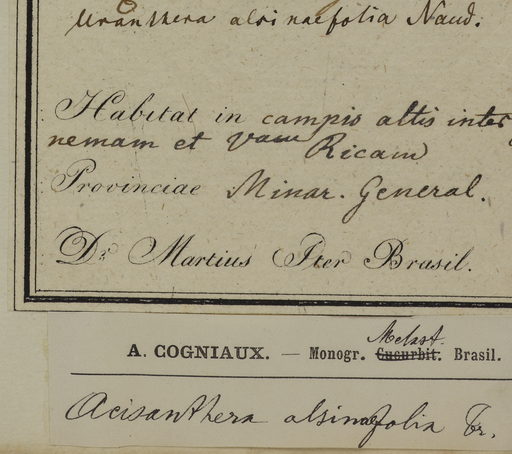 Uranthera alsinaefolia Naud.
Habitat in campis altis inter
nemam et Vam Ricam
Provinciae Minar. General.
Dr. Martius Iter Brasil.
Melast.
A. COGNIAUX. — Monogr. Cucurbit. Brasil.
Acisanthera alsinaefolia Tr.